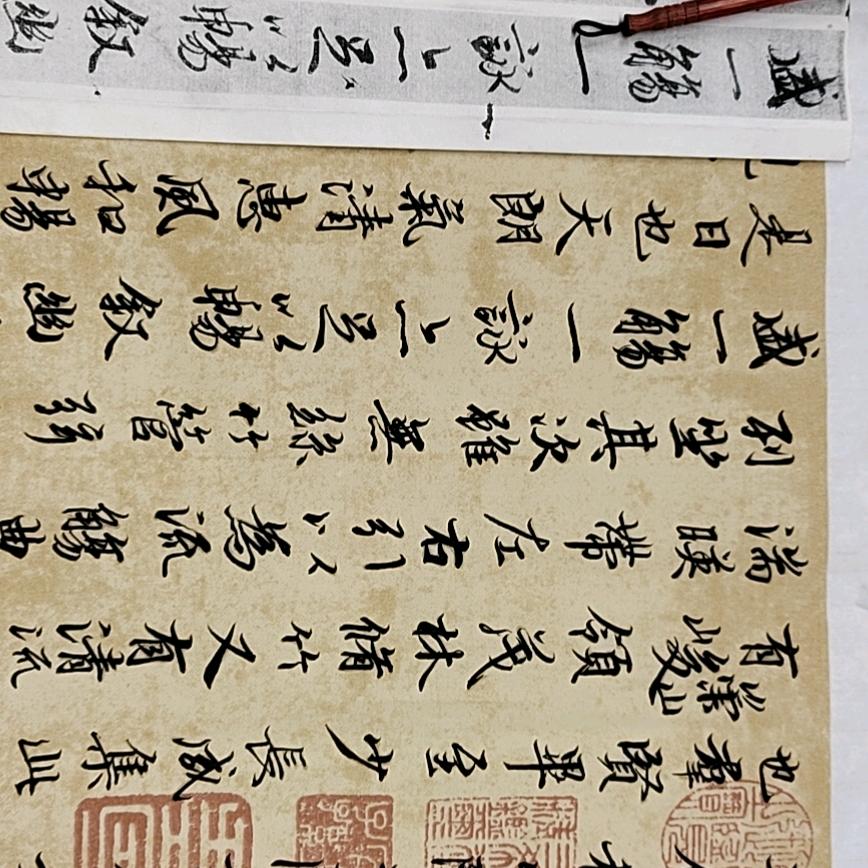 也羣賢畢至少長咸集此
有崇山峻領茂林脩竹又有清流
湍暎帶左右引以為流觴曲
列坐其次雖無絲竹管弦
盛一觴一詠亦足以暢敘幽
是日也天朗氣清惠風和暢
盛一觴一詠亦足以暢敘幽